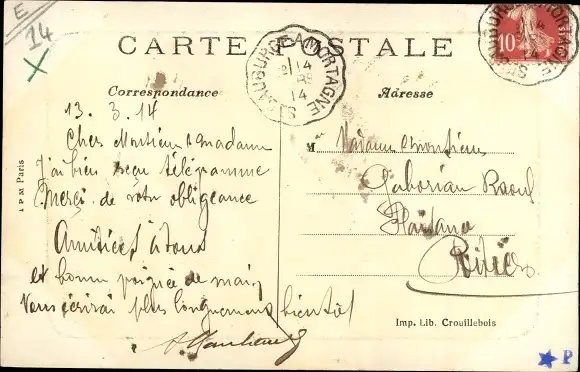 E
14
CARTE POSTALE
ST AUBUR GEA MORTAGNE
14
14
10
Correspondance
Adresse
13.3.14
Cher Monsieur & madame
J'ai bien reçu télégramme
Merci de votre obligeance
Amitiés à tous
et bonne poignée de main
Vous écrirai plus longuement bientôt
M
Madame & monsieur
Gaborian Raoul
Plaisance
Poitiers
I P M Paris
Imp. Lib. Crouillebois
P